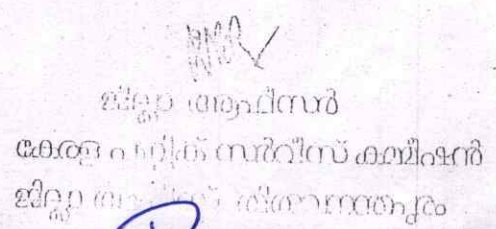 ജില്ലാ ആഫീസർ
കേരള പബ്ലിക് സർവീസ് കമ്മീഷൻ
ജില്ലാ ആഫീസ്, തിരുവനന്തപുരം